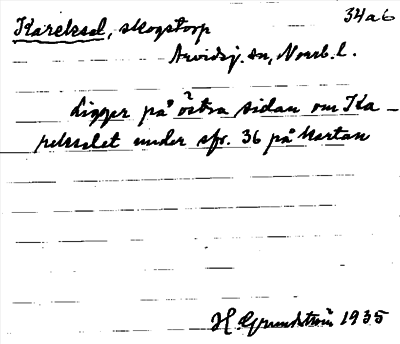 34a6
Kareksel, skogstorp
Arvidsj. sn, Norrb. l.
Ligger på östra sidan om Ka-
pekselet under sfr. 36 på kartan
H. Grundström 1935